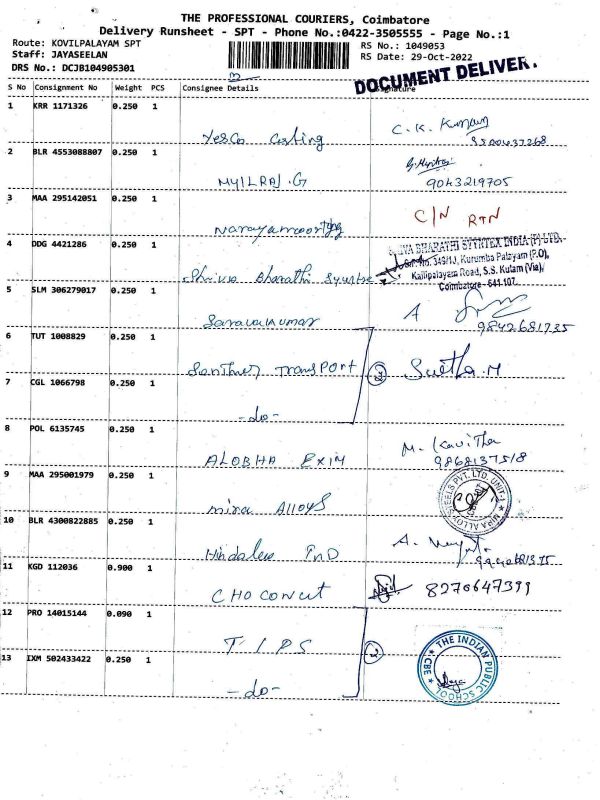 THE PROFESSIONAL COURIERS, Coimbatore
Delivery Runsheet - SPT - Phone No.:0422-3505555 - Page No.:1
Route: KOVILPALAYAM SPT
Staff: JAYASEELAN
DRS No.: DCJB104905301
RS No.: 1049053
RS Date: 29-Oct-2022
DOCUMENT DELIVER.
S No Consignment No Weight PCS Consignee Details Signature
1 KRR 1171326 0.250 1
Yesco Casting C.K. Kumar
2 BLR 4553088807 0.250 1
MYILRAJ.G 9043219705
3 MAA 295142051 0.250 1
Narayamoorthy C/N RTN
4 DDG 4421286 0.250 1
Shiva Bharathi Syntex
SHIVA BHARATHI SYNTEX INDIA (P) LTD
S.F. No. 349/1J, Kurumba Palayam (P.O),
Kalipalayam Road, S.S. Kulam (Via),
Coimbatore - 641 107.
5 SLM 306279017 0.250 1
Saravakumar A 9842681735
6 TUT 1008829 0.250 1
Santhier Transport 2 Swetha.M
7 CGL 1066798 0.250 1
-do-
8 POL 6135745 0.250 1
ALOBHA EXIM M. Kavitha
9868137518
9 MAA 295001979 0.250 1
Mira Alloys
STEELS PVT. LTD. UNIT-1 ★ MIRA ALLOY
10 BLR 4300822885 0.250 1
Hindalco IND A.
11 KGD 112036 0.900 1
CHOCONUT 8270647399
12 PRO 14015144 0.090 1
T I P S 2
13 IXM 502433422 0.250 1
-do-
THE INDIAN PUBLIC SCHOOL ★ CBE ★